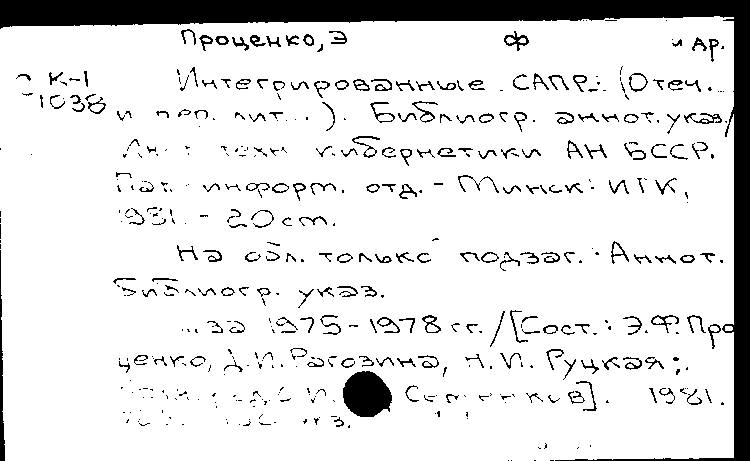 Проценко, Э Ф и др.
К-1
1038
Интегрированные САПР: (Отеч.
и пер. лит...). Библиогр. аннот. указ./
техн кибернетики АН БССР.
Пат. информ. отд. - Минск: ИТК,
1981. - 20 cm.
На обл. только подзаг.: Аннот.
Библиогр. указ.
...за 1975-1978 гг. / [Сост.: Э.Ф. Про
ценко, Д.И. Рагозина, Н.И. Руцкая;
И. ]. 1981.